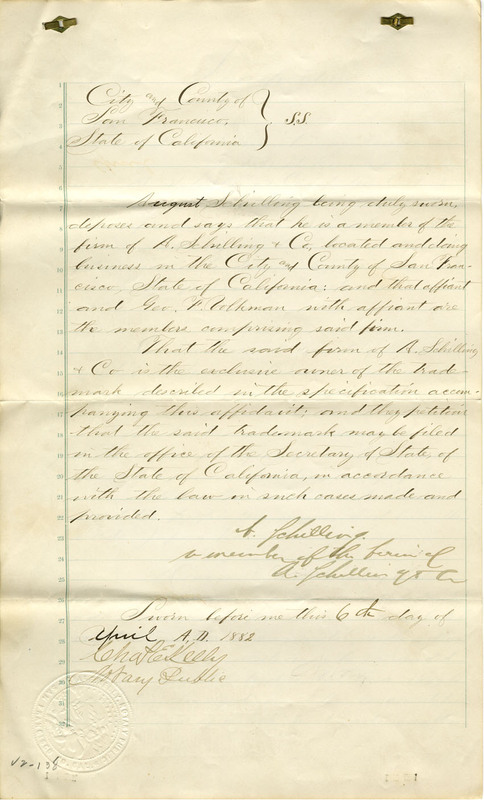 City and County of
San Francisco,
State of California } S.S.
August Schilling being duly sworn,
deposes and says that he is a member of the
firm of A. Schilling & Co, located and doing
business in the City and County of San Fran-
cisco, State of California: and that affiant
and Geo. F. Volkman with affiant are
the members comprising said firm.
That the said firm of A. Schilling
& Co is the exclusive owner of the trade-
mark described in the specification accom-
panying this affidavit; and they petition
that the said trademark may be filed
in the office of the Secretary of State, of
the State of California, in accordance
with the law in such cases made and
provided.
A. Schilling.
a member of the firm of
A. Schilling & Co
Sworn before me this 6th day of
April A.D. 1882
Chas E. Kelly
Notary Public